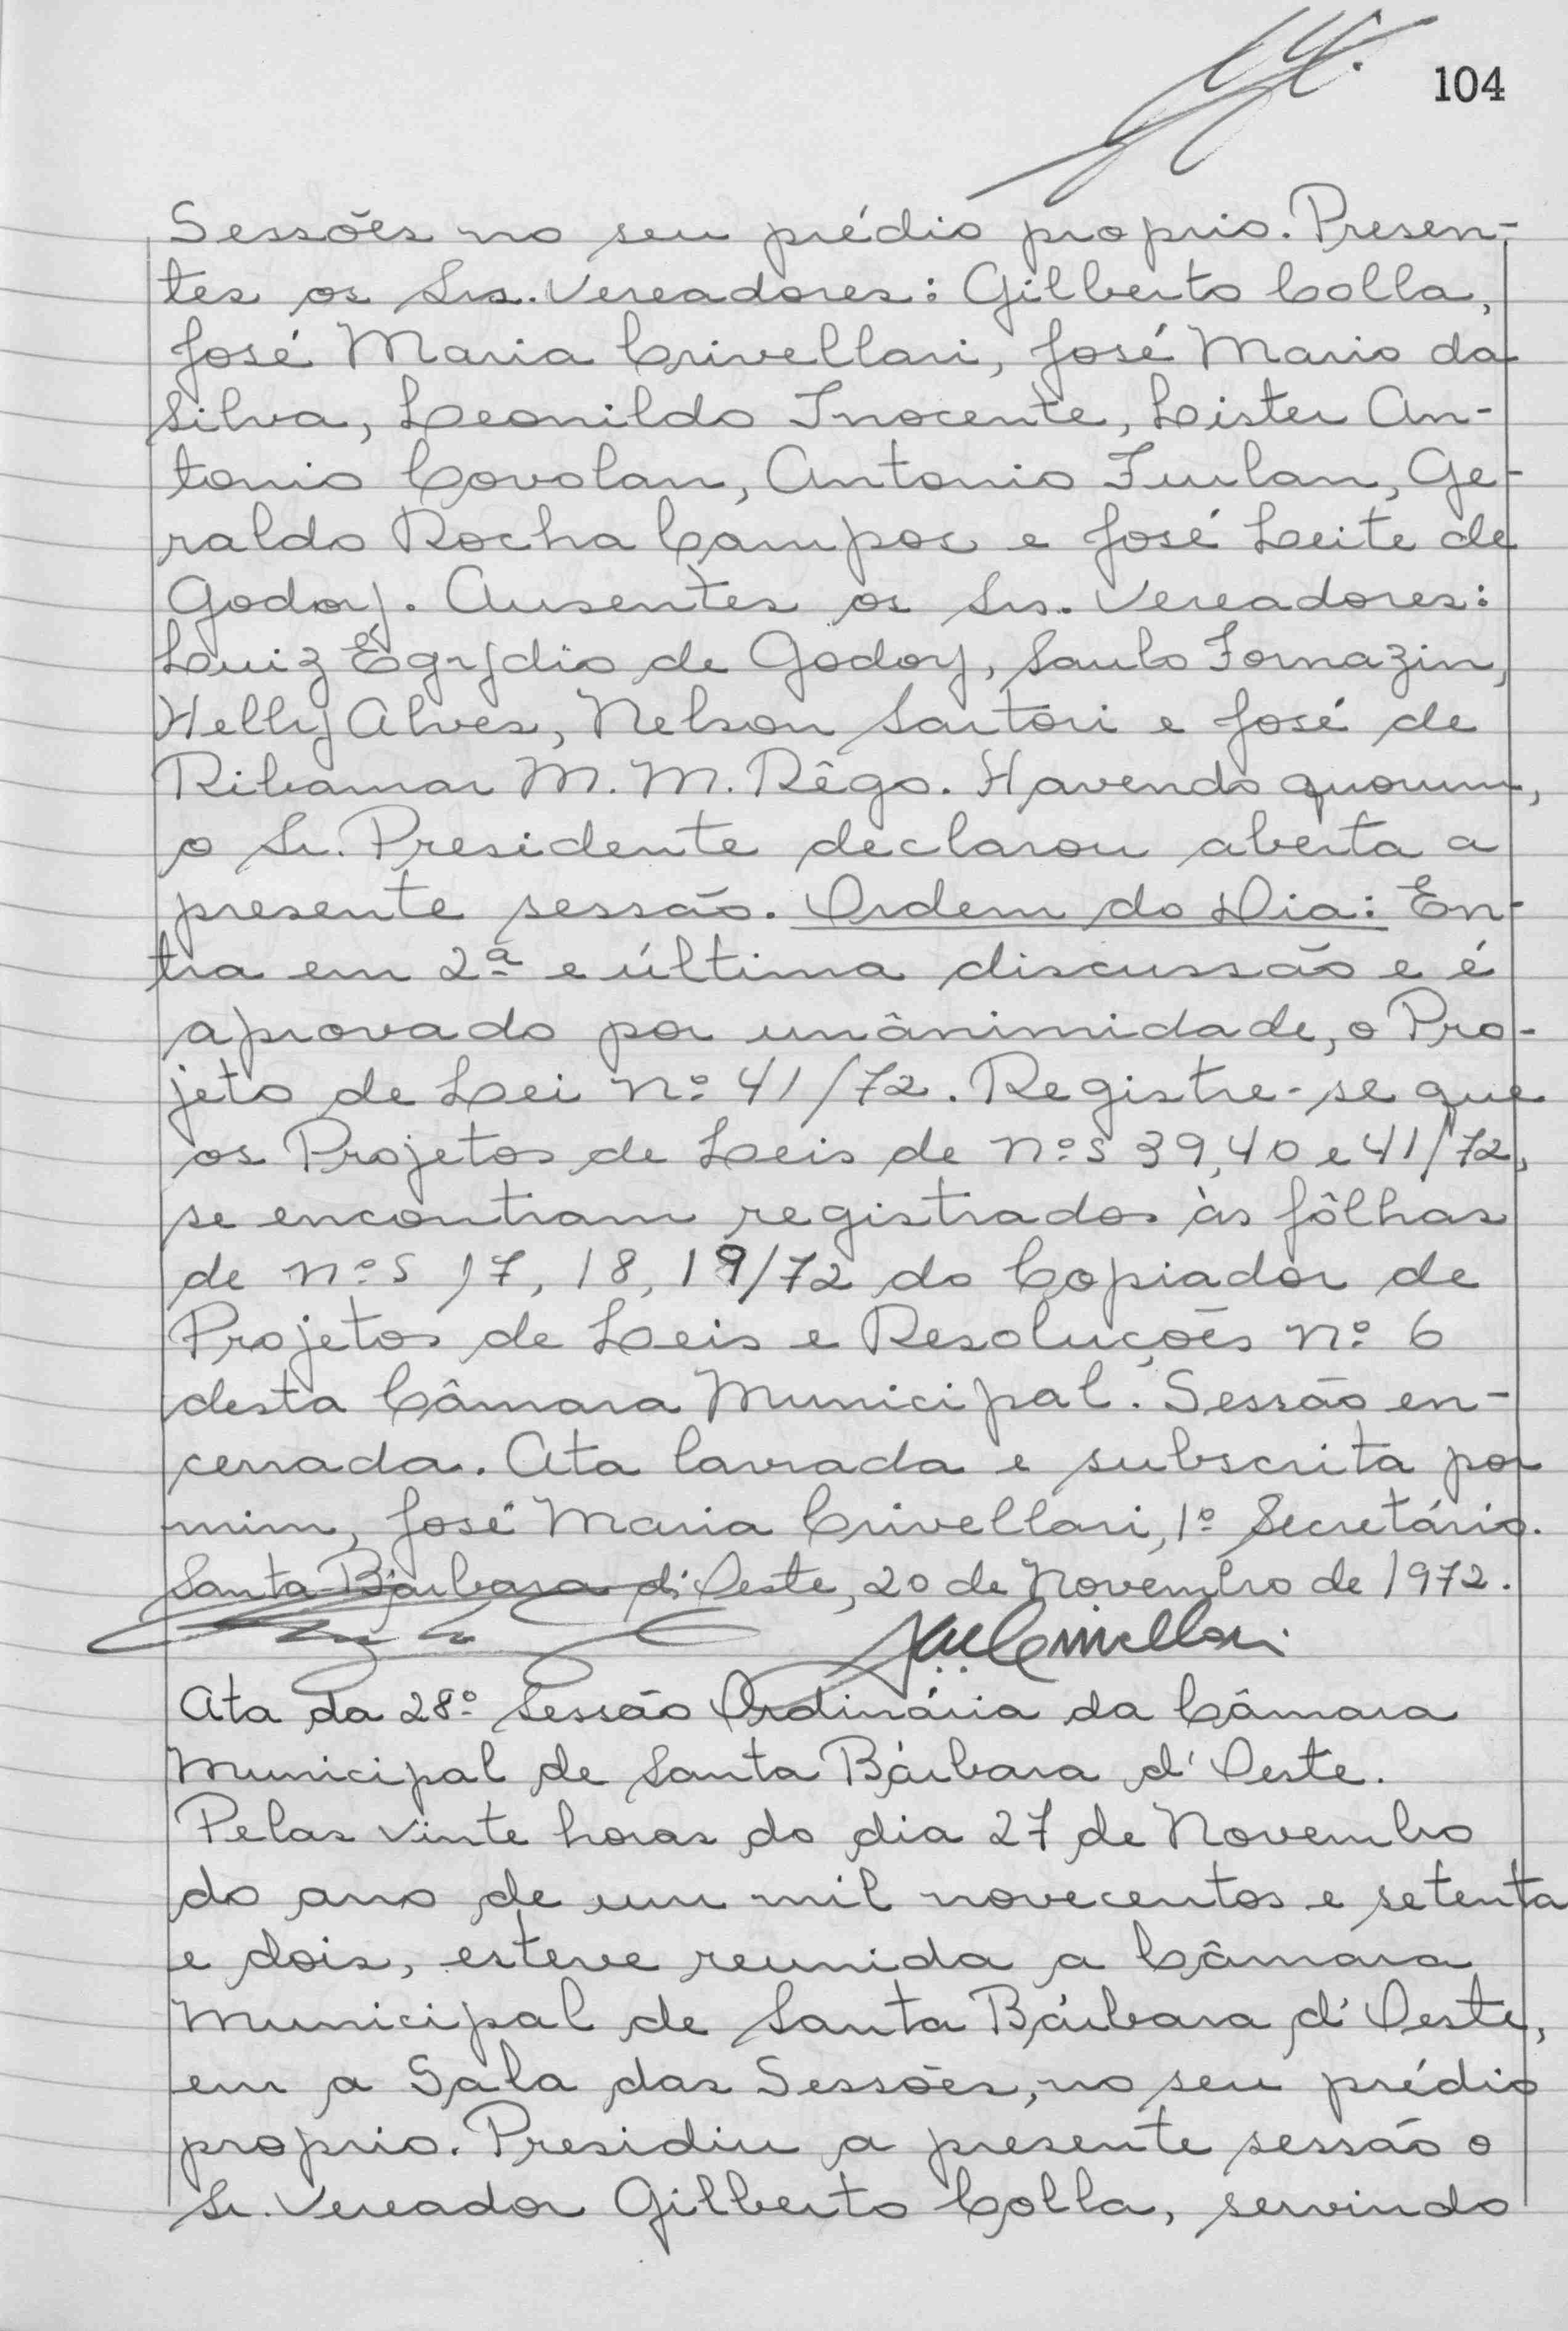 104
Sessões no seu prédio proprio. Presen-
tes os Srs. Vereadores: Gilberto Colla,
José Maria Crivellari, José Mario da
Silva, Leonildo Inocente, Lister An-
tonio Covolan, Antonio Furlan, Ge-
raldo Rocha Campos e José Leite de
Godoy. Ausentes os Srs. Vereadores:
Luiz Égydio de Godoy, Saulo Fornazin,
Helly Alves, Nelson Sartori e José de
Ribamar M. M. Rêgo. Havendo quorum,
o Sr. Presidente declarou aberta a
presente sessão. Ordem do Dia: En-
tra em 2ª e última discussão e é
aprovado por unânimidade, o Pro-
jeto de Lei nº 41/72. Registre-se que
os Projetos de Leis de nºs 39, 40 e 41/72,
se encontram registrados às fôlhas
de nºs 17, 18, 19/72 do Copiador de
Projetos de Leis e Resoluções nº 6
desta Câmara Municipal. Sessão en-
cerrada. Ata lavrada e subscrita por
mim, José Maria Crivellari, 1º Secretário.
Santa Bárbara d'Oeste, 20 de Novembro de 1972.
Ata da 28º Sessão Ordinária da Câmara
Municipal de Santa Bárbara d'Oeste.
Pelas vinte horas do dia 27 de Novembro
do ano de um mil novecentos e setenta
e dois, esteve reunida a Câmara
Municipal de Santa Bárbara d'Oeste,
em a Sala das Sessões, no seu prédio
proprio. Presidiu a presente sessão o
Sr. Vereador Gilberto Colla, servindo